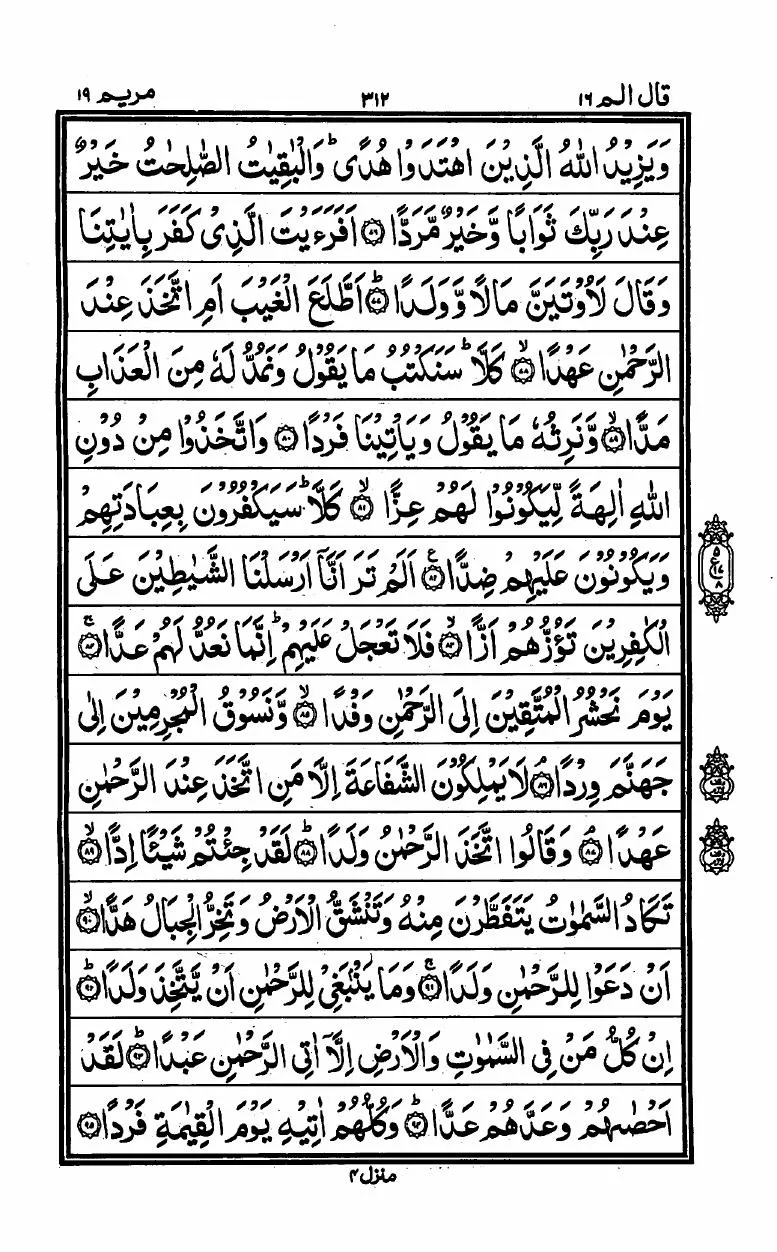 قال الم ١٦
٣١٢
مريم ١٩
وَيَزِيْدُ اللّٰهُ الَّذِيْنَ اهْتَدَوْا هُدًى ؕ وَالْبٰقِيٰتُ الصّٰلِحٰتُ خَيْرٌ
عِنْدَ رَبِّكَ ثَوَابًا وَّخَيْرٌ مَّرَدًّا ﴿٧٦﴾ اَفَرَءَيْتَ الَّذِىْ كَفَرَ بِاٰيٰتِنَا
وَقَالَ لَاُوْتَيَنَّ مَالًا وَّوَلَدًا ؕ﴿٧٧﴾ اَطَّلَعَ الْغَيْبَ اَمِ اتَّخَذَ عِنْدَ
الرَّحْمٰنِ عَهْدًا ۙ﴿٧٨﴾ كَلَّا ؕ سَنَكْتُبُ مَا يَقُوْلُ وَنَمُدُّ لَهٗ مِنَ الْعَذَابِ
مَدًّا ۙ﴿٧٩﴾ وَّنَرِثُهٗ مَا يَقُوْلُ وَيَاْتِيْنَا فَرْدًا ﴿٨٠﴾ وَاتَّخَذُوْا مِنْ دُوْنِ
اللّٰهِ اٰلِهَةً لِّيَكُوْنُوْا لَهُمْ عِزًّا ۙ﴿٨١﴾ كَلَّا ؕ سَيَكْفُرُوْنَ بِعِبَادَتِهِمْ
وَيَكُوْنُوْنَ عَلَيْهِمْ ضِدًّا ﴿٨٢﴾ۧ اَلَمْ تَرَ اَنَّاۤ اَرْسَلْنَا الشَّيٰطِيْنَ عَلَى
الْكٰفِرِيْنَ تَؤُزُّهُمْ اَزًّا ۙ﴿٨٣﴾ فَلَا تَعْجَلْ عَلَيْهِمْ ؕ اِنَّمَا نَعُدُّ لَهُمْ عَدًّا ۚ﴿٨٤﴾
يَوْمَ نَحْشُرُ الْمُتَّقِيْنَ اِلَى الرَّحْمٰنِ وَفْدًا ۙ﴿٨٥﴾ وَّنَسُوْقُ الْمُجْرِمِيْنَ اِلٰى
جَهَنَّمَ وِرْدًا ۘ﴿٨٦﴾ لَا يَمْلِكُوْنَ الشَّفَاعَةَ اِلَّا مَنِ اتَّخَذَ عِنْدَ الرَّحْمٰنِ
عَهْدًا ۘ﴿٨٧﴾ وَقَالُوا اتَّخَذَ الرَّحْمٰنُ وَلَدًا ؕ﴿٨٨﴾ لَقَدْ جِئْتُمْ شَيْئًا اِدًّا ۙ﴿٨٩﴾
تَكَادُ السَّمٰوٰتُ يَتَفَطَّرْنَ مِنْهُ وَتَنْشَقُّ الْاَرْضُ وَتَخِرُّ الْجِبَالُ هَدًّا ۙ﴿٩٠﴾
اَنْ دَعَوْا لِلرَّحْمٰنِ وَلَدًا ۚ﴿٩١﴾ وَمَا يَنْۢبَغِىْ لِلرَّحْمٰنِ اَنْ يَّتَّخِذَ وَلَدًا ؕ﴿٩٢﴾
اِنْ كُلُّ مَنْ فِى السَّمٰوٰتِ وَالْاَرْضِ اِلَّاۤ اٰتِى الرَّحْمٰنِ عَبْدًا ؕ﴿٩٣﴾ لَقَدْ
اَحْصٰىهُمْ وَعَدَّهُمْ عَدًّا ؕ﴿٩٤﴾ وَكُلُّهُمْ اٰتِيْهِ يَوْمَ الْقِيٰمَةِ فَرْدًا ﴿٩٥﴾
منزل ٤